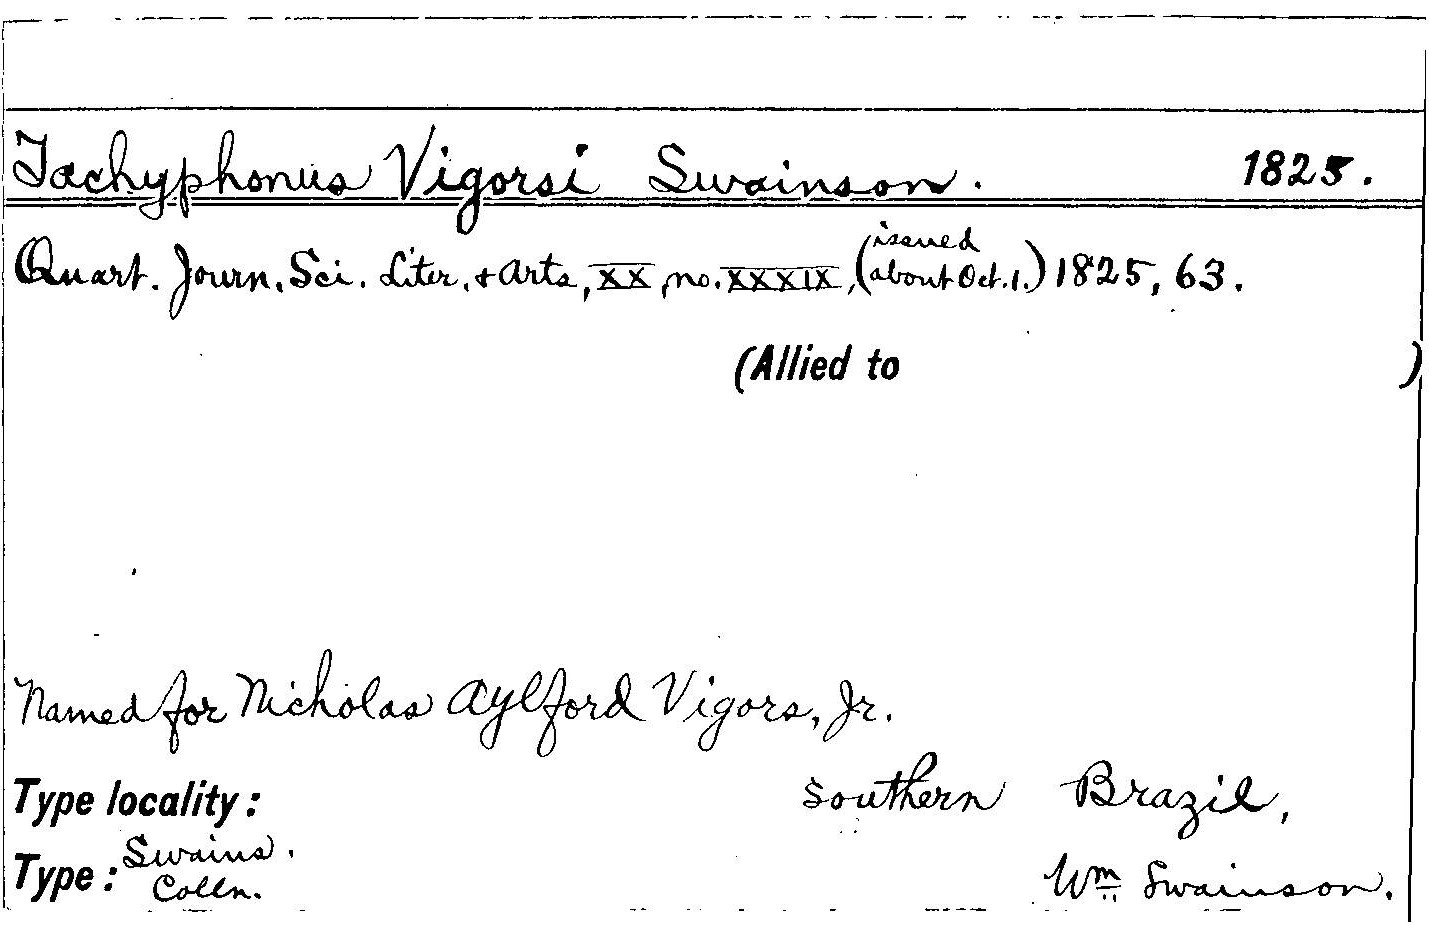 Tachyphonus Vigorsi Swainson. 1825.
Quart. Journ. Sci. Liter. & Arts, XX, no. XXXIX, (issued about Oct. 1.) 1825, 63.
(Allied to )
Named for Nicholas Aylford Vigors, Jr.
Type locality: Southern Brazil,
Type: Swains. Colln. Wm Swainson.